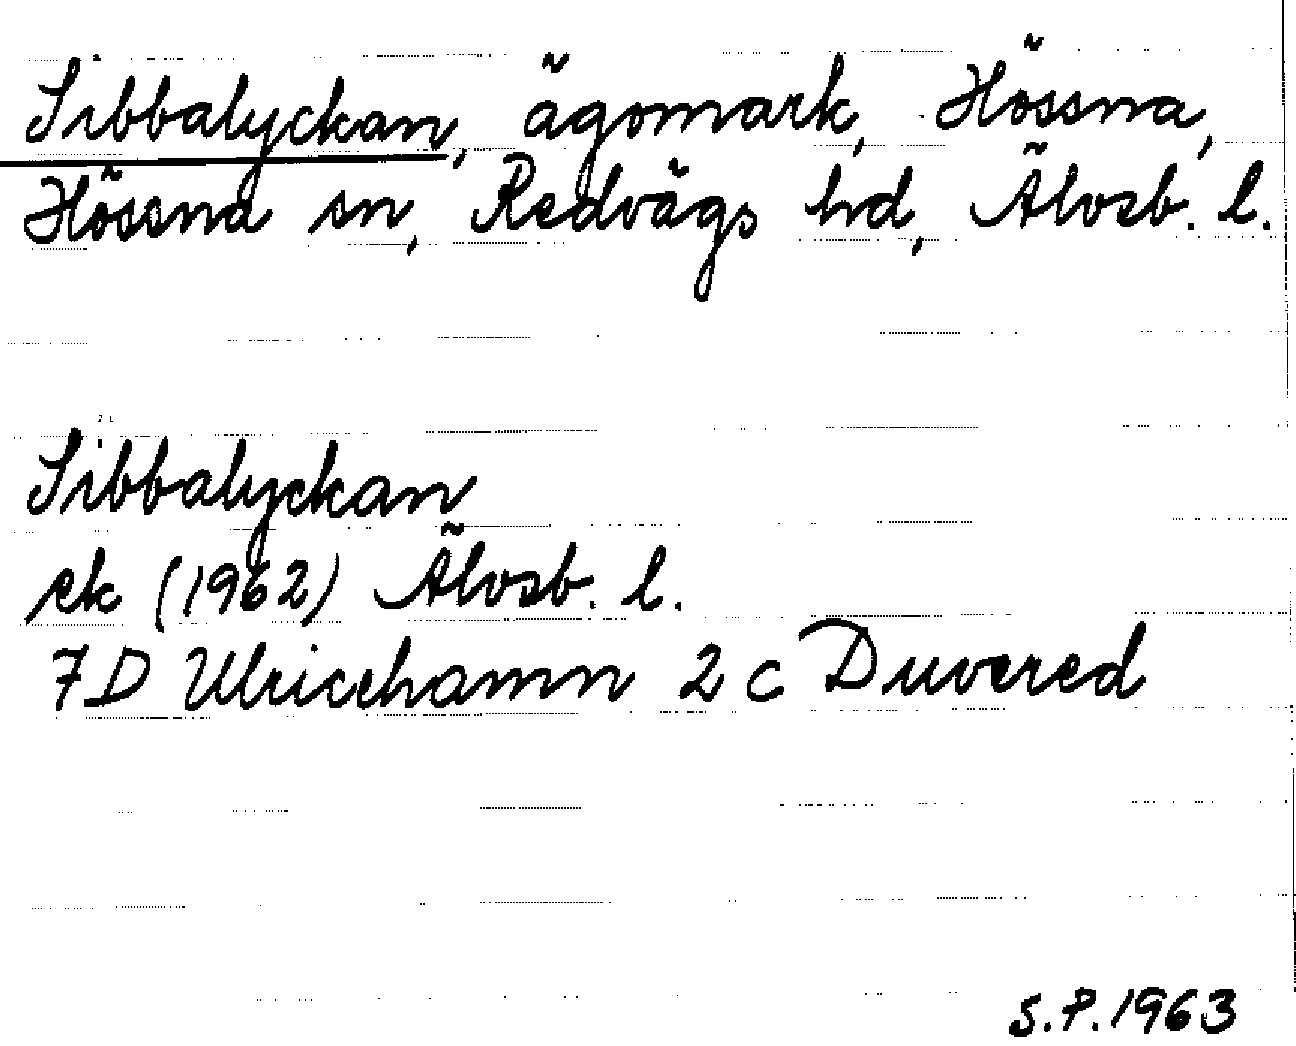 Sibbalyckan, ägomark, Hössna,
Hössna sn, Redvägs hd, Älvsb. l.
Sibbalyckan
ek (1962) Älvsb. l.
7D Ulricehamn 2 c Duvered
S.P. 1963